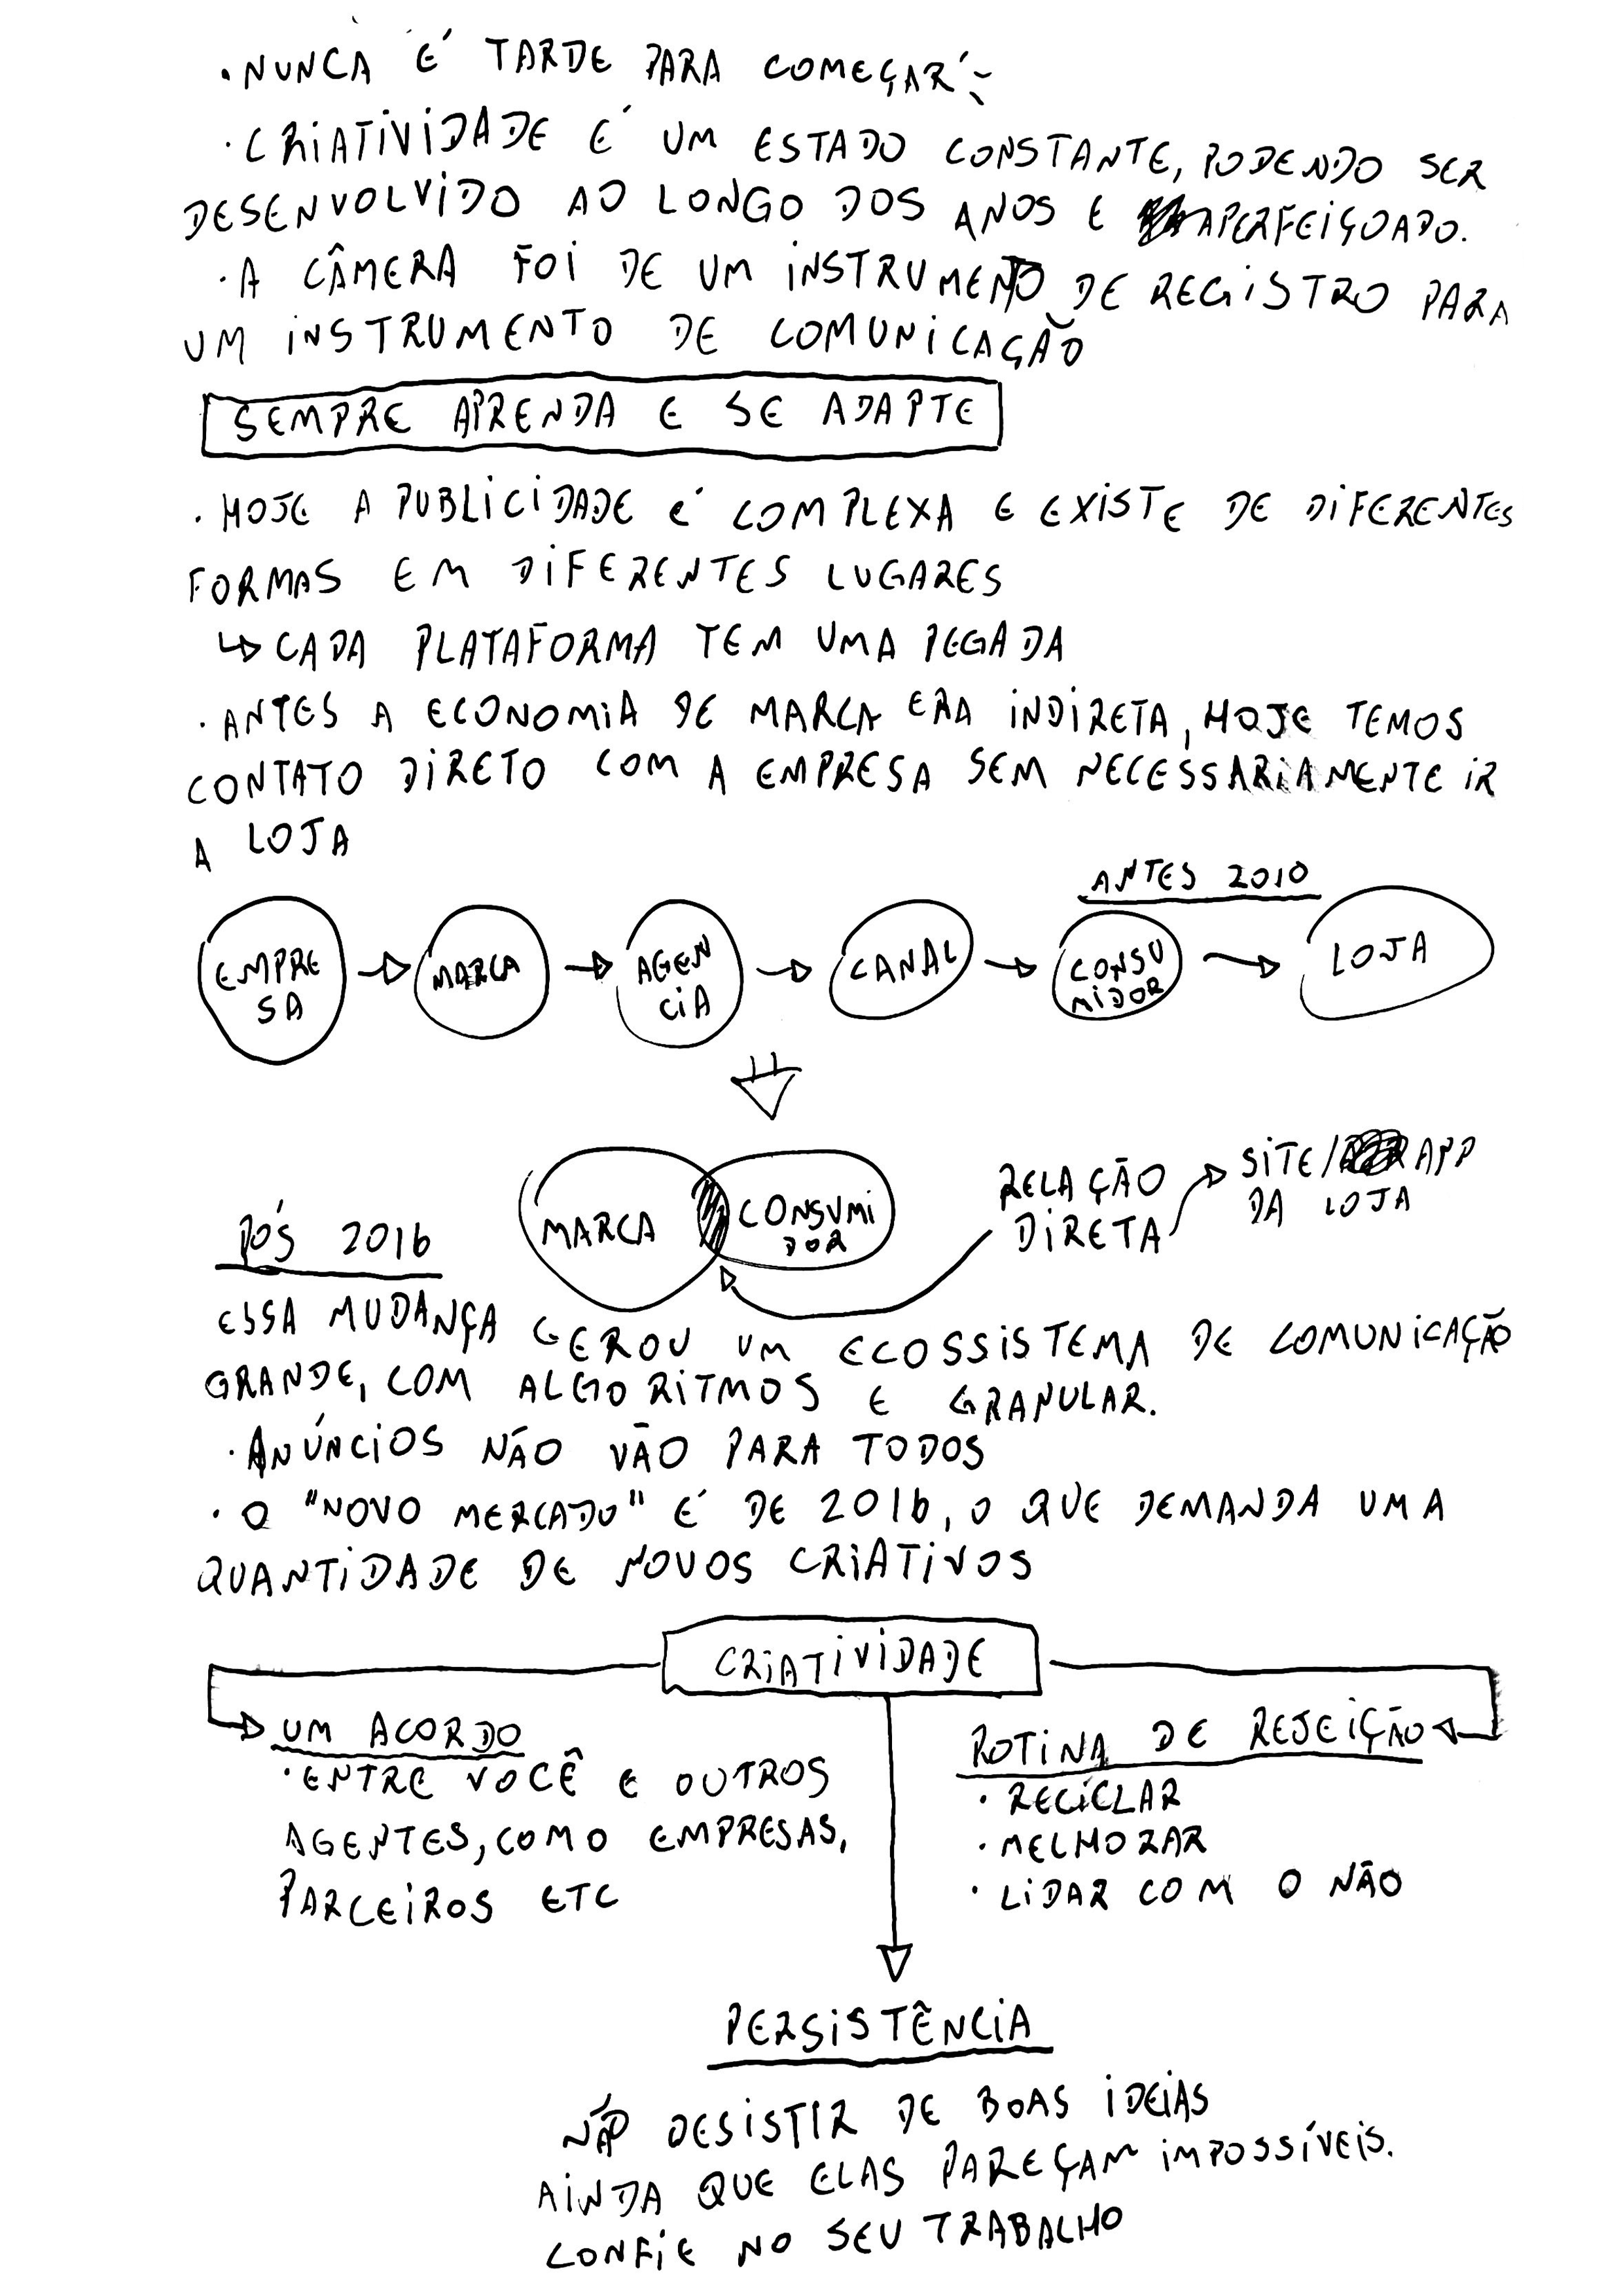 • NUNCA É TARDE PARA COMEÇAR
• CRIATIVIDADE É UM ESTADO CONSTANTE, PODENDO SER
DESENVOLVIDO AO LONGO DOS ANOS E APERFEIÇOADO.
• A CÂMERA FOI DE UM INSTRUMENTO DE REGISTRO PARA
UM INSTRUMENTO DE COMUNICAÇÃO
SEMPRE APRENDA E SE ADAPTE
• HOJE A PUBLICIDADE É COMPLEXA E EXISTE DE DIFERENTES
FORMAS EM DIFERENTES LUGARES
↳ CADA PLATAFORMA TEM UMA PEGADA
• ANTES A ECONOMIA DE MARCA ERA INDIRETA, HOJE TEMOS
CONTATO DIRETO COM A EMPRESA SEM NECESSARIAMENTE IR
A LOJA
ANTES 2010
EMPRE
SA
→ MARCA
→ AGEN
CIA
→ CANAL
→ CONSU
MIDOR
→ LOJA
PÓS 2016
MARCA
CONSUMI
DOR
RELAÇÃO
DIRETA
SITE/APP
DA LOJA
ESSA MUDANÇA GEROU UM ECOSSISTEMA DE COMUNICAÇÃO
GRANDE, COM ALGORITMOS E GRANULAR.
• ANÚNCIOS NÃO VÃO PARA TODOS
• O "NOVO MERCADO" É DE 2016, O QUE DEMANDA UMA
QUANTIDADE DE NOVOS CRIATIVOS
CRIATIVIDADE
UM ACORDO
• ENTRE VOCÊ E OUTROS
AGENTES, COMO EMPRESAS,
PARCEIROS ETC
ROTINA DE REJEIÇÃO
• RECICLAR
• MELHORAR
• LIDAR COM O NÃO
PERSISTÊNCIA
NÃO DESISTIR DE BOAS IDEIAS
AINDA QUE ELAS PAREÇAM IMPOSSÍVEIS.
CONFIE NO SEU TRABALHO